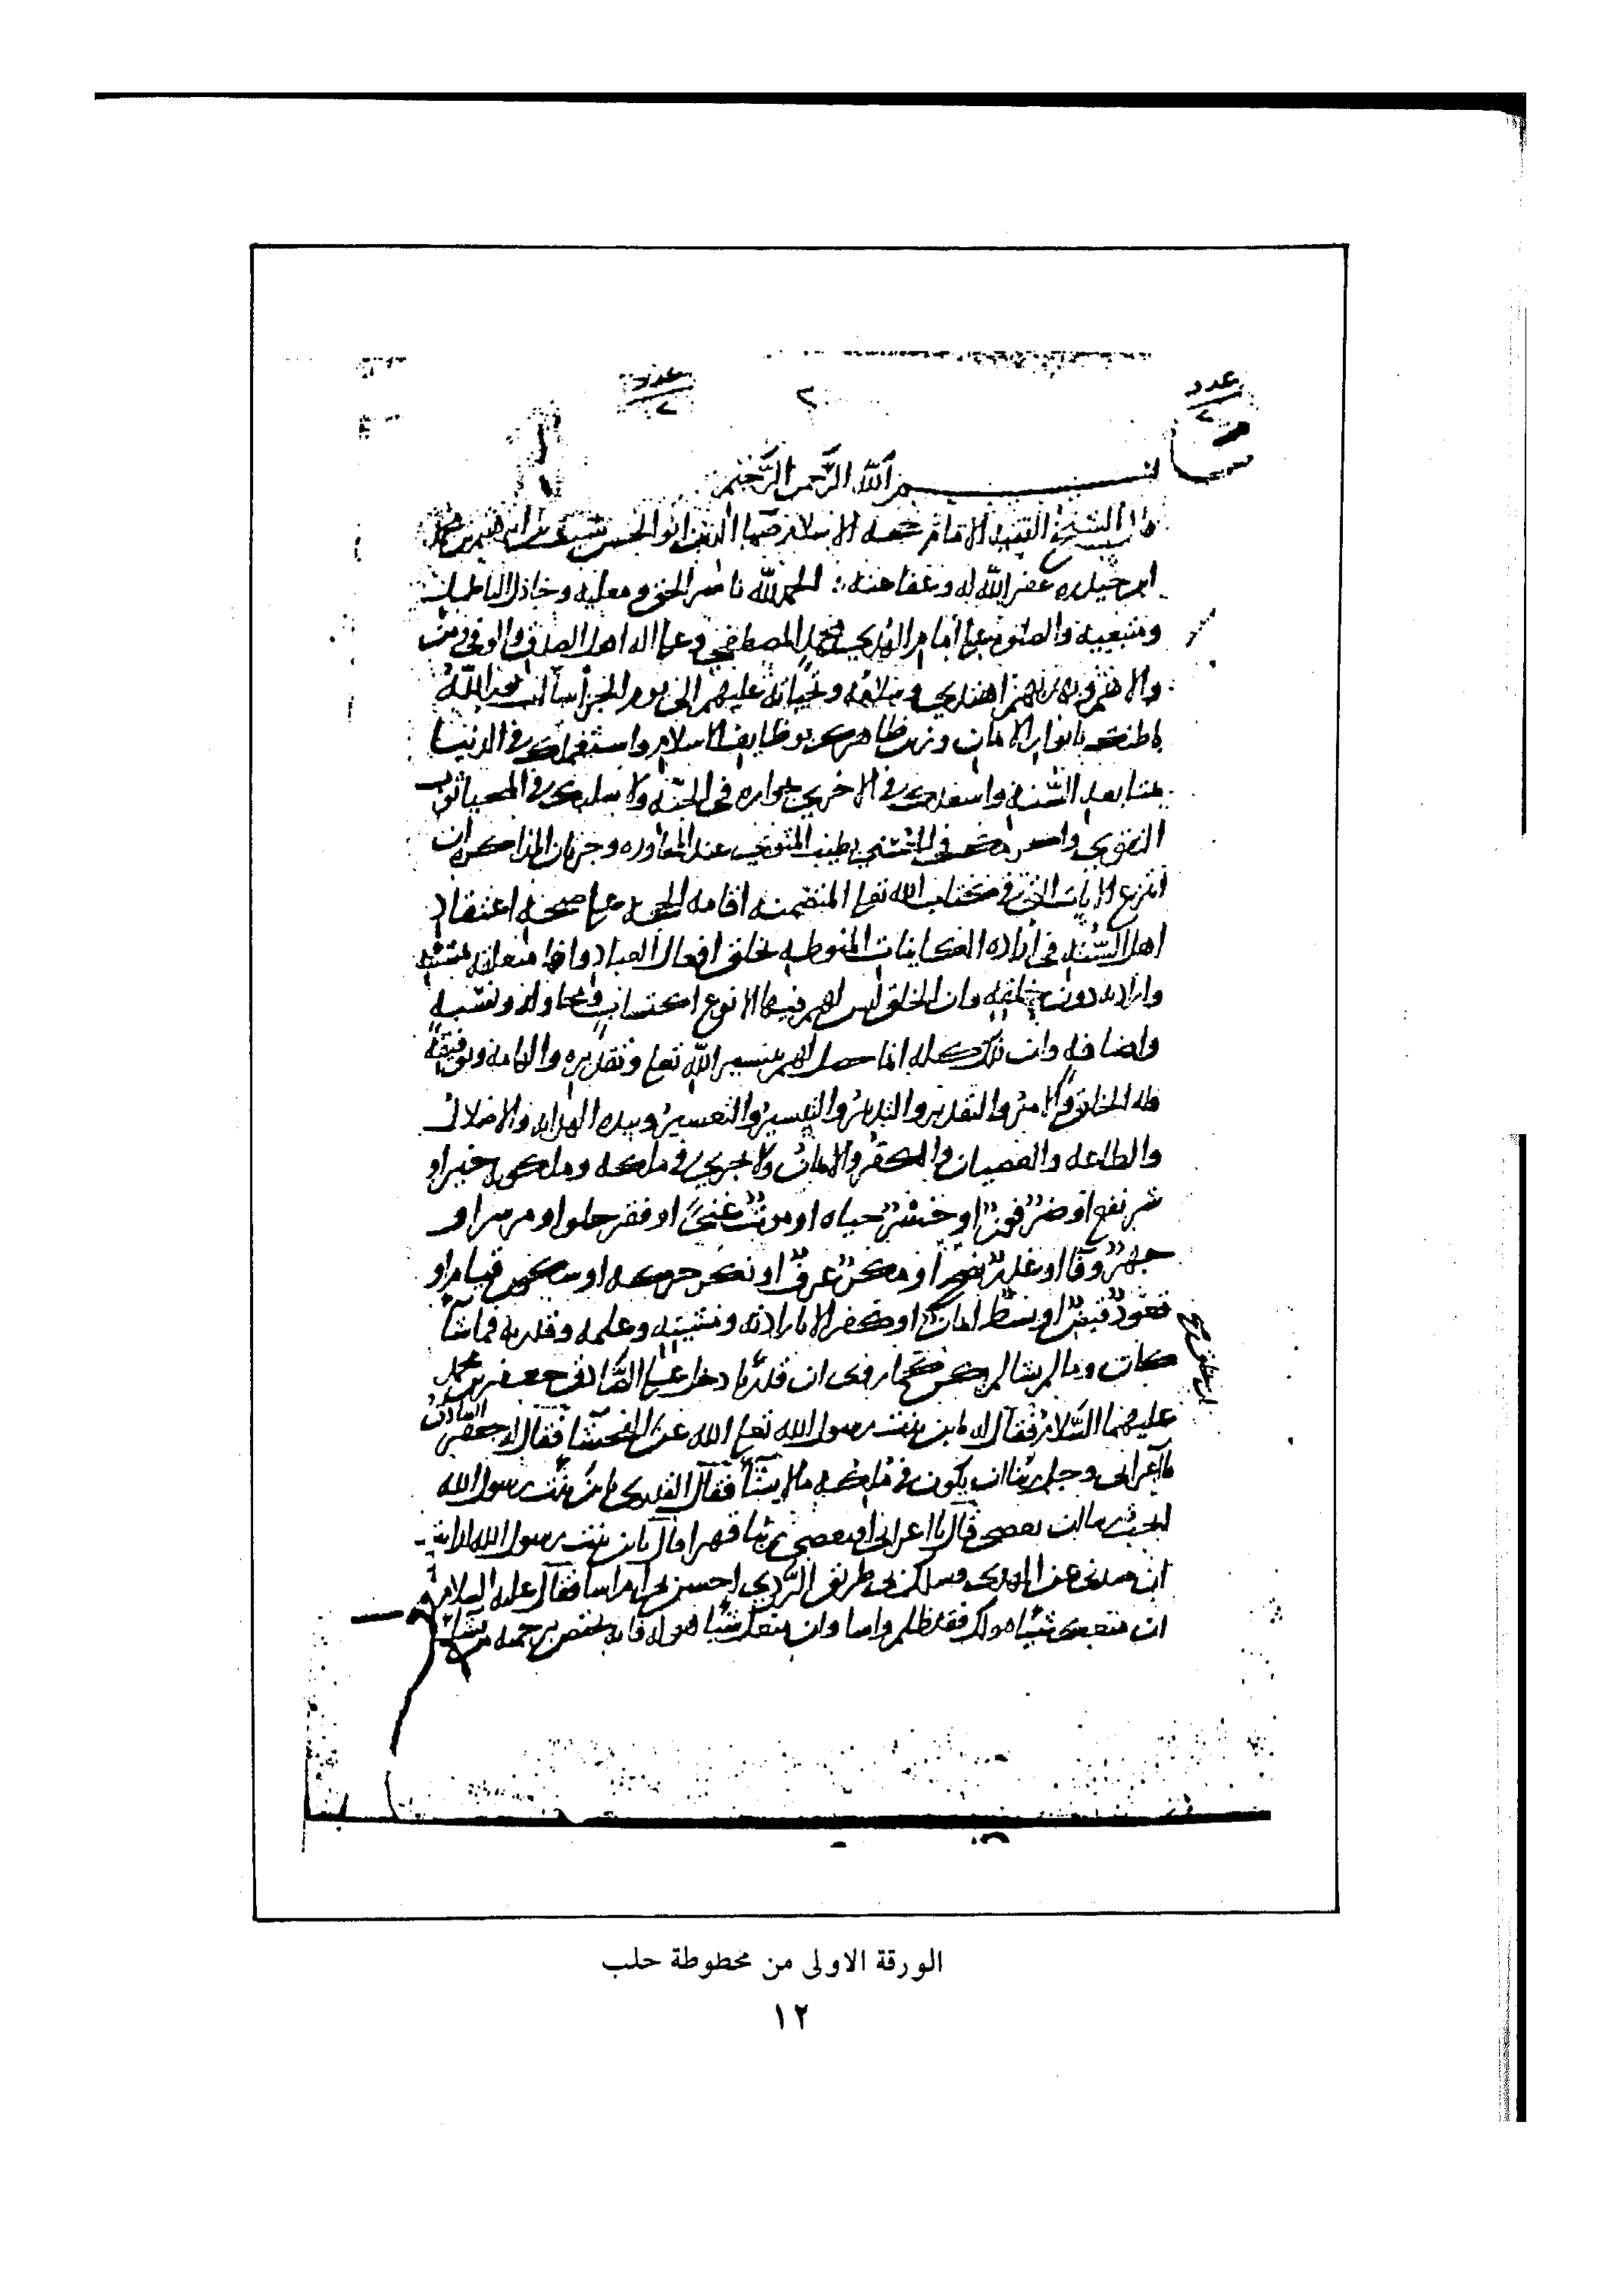 عدد
٢
٢
عدد
٢
بسم الله الرحمن الرحيم
قال الشيخ الفقيه الامام حجه الاسلام ضيا الدين ابو الحسن شيث بن ابراهيم بن محمد
ابن حيدره غفر الله له وعفا عنه الحمد لله ناصر الحق ومعليه وخاذل الباطل
ومتبعيه والصلوه على امام الهدى محمد المصطفى وعلى اله اهل الصدق والوفى ومن
والاهم وبهديهم اهتدى وسلامه وتحياته عليهم الى يوم الجزا سالت نور الله
باطنك بانوار الامان وزين ظاهرك بوظايف الاسلام واستعملك في الدنيا
بمتابعه السنه واسعدك في الاخرى بجواره في الجنه ولا سلبك في المحيا ثوب
التقوى في المثوى عند المحاوره وجريان المذاكره ان
انتزع الايات التي في كتاب الله تعلى المتضمنه اقامه الحجه على صحه اعتقاد
اهل السنه في اراده الكاينات المنوطه بخلق افعال العباد وانها متعلقه بمشيته
وارادته دون خلقه وان الخلق ليس لهم فيها الا نوع اكتساب ومحاوله ونسبه
واضافه وان ذلك كله انما حصل لهم بتيسير الله تعلى وتقديره والهامه وتوفيقه
فله الخلق والامر والتقدير والتدبير والتيسير والتعسير وبيده الهدايه والاضلال
والطاعه والعصيان والكفر والامان ولا يجرى في ملكه وملكوته خير او
شر نفع او ضر فوز او خسر حياه او موت غنى او فقر حلو او مر سر او
جهر وفا او غدر نصح او مكر عرف او نكر حركه او سكون قيام او
قعود قبض او بسط امان او كفر الا بارادته ومشيته وعلمه وقدرته فما شا
كان وما لم يشا لم يكن كما روى ان قدريا دخل على الصادق جعفر بن محمد
عليهما السلام فقال له يابن بنت رسول الله تعلى الله عن الفحشا فقال له جعفر
الصادق
يا اعرابى وجل ربنا ان يكون في ملكه ما لا يشا فقال القدرى يابن بنت رسول الله
ايحب ربنا ان يعصى قال يا اعرابى افيعصى ربنا قهرا قال يابن بنت رسول الله ارايت
ان صدنى عن الهدى وسلك بى طريق الردى احسن بى ام اسا فقال عليه السلام
ان منعك شيا هو لك فقد ظلم واسا وان منعك شيا هو له فانه يختص برحمته من يشا
الورقة الاولى من مخطوطة حلب
١٢